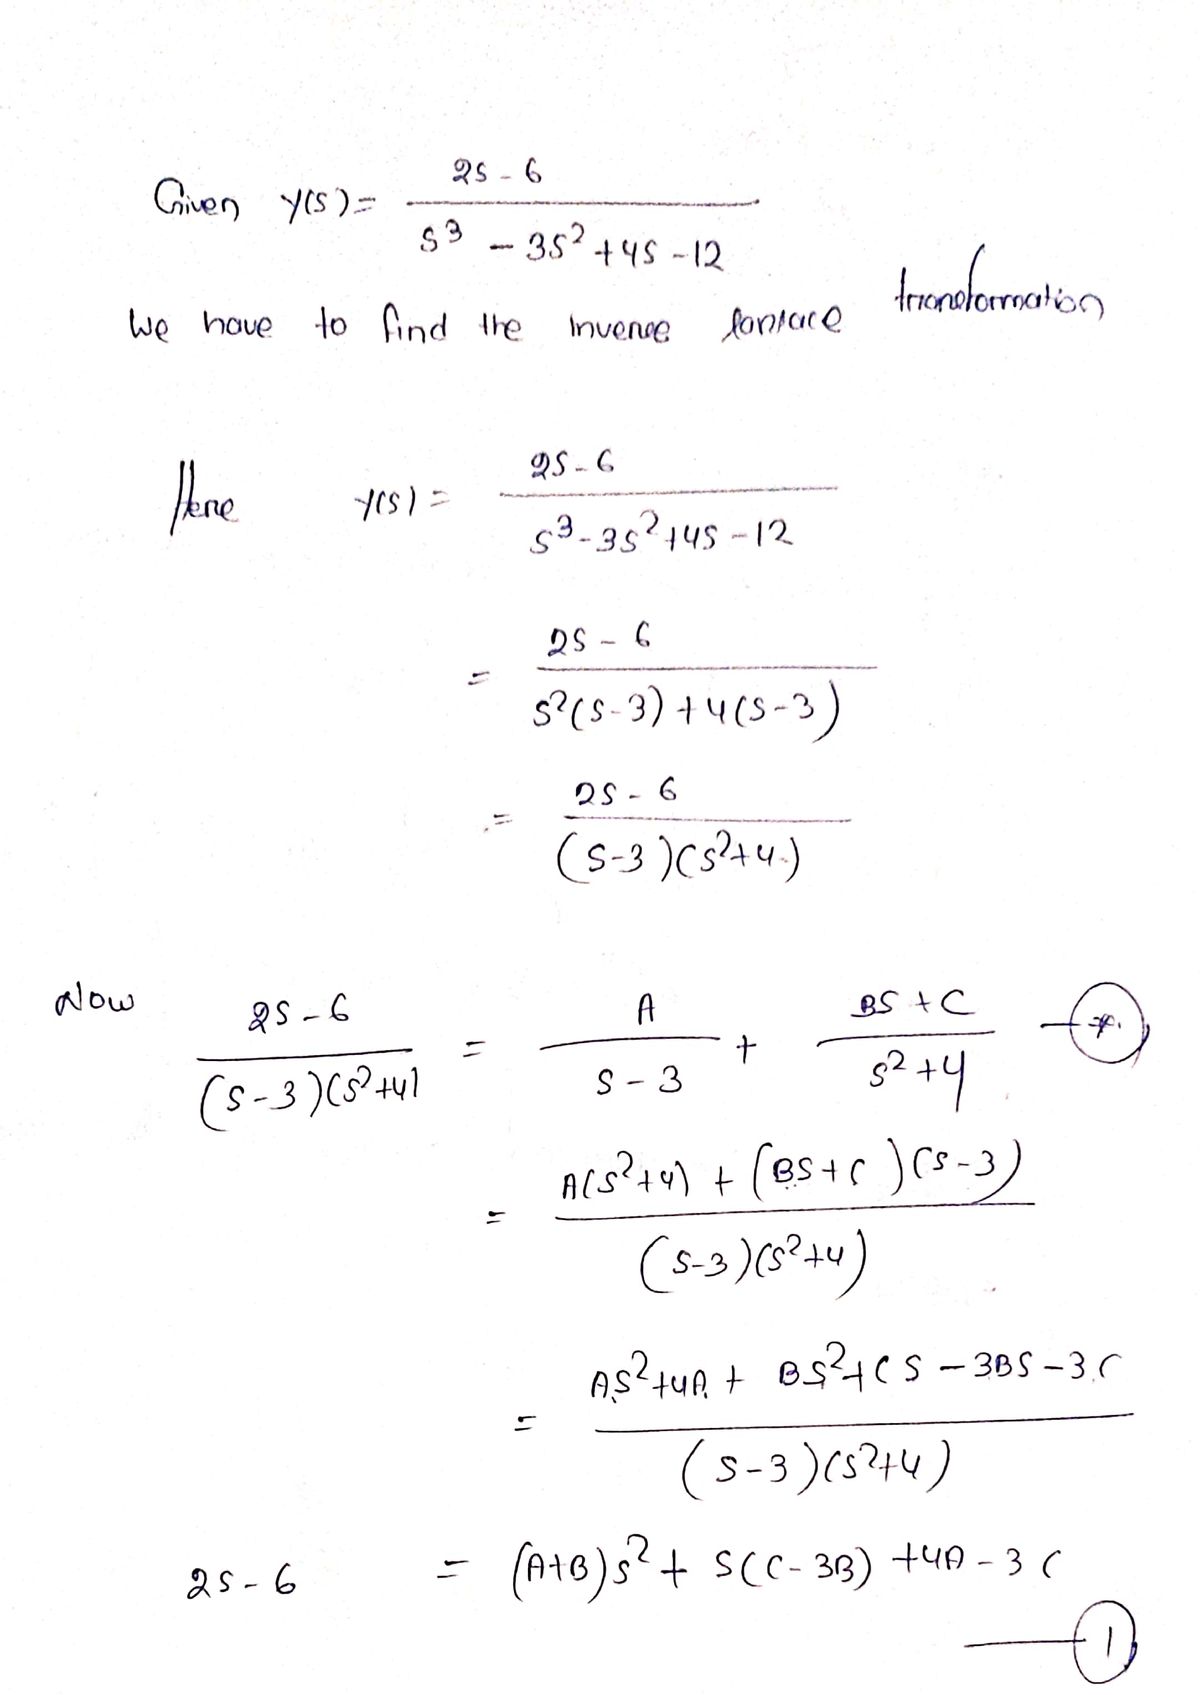 Given Y(S) = 2S - 6 / S³ - 3S² + 4S - 12
We have to find the invense lanlace transformation
Here Y(S) = 2S - 6 / S³ - 3S² + 4S - 12
= 2S - 6 / S²(S-3) + 4(S-3)
= 2S - 6 / (S-3)(S²+4)
Now 2S - 6 / (S-3)(S²+4) = A / S - 3 + BS + C / S² + 4 — *
= A(S²+4) + (BS+C)(S-3) / (S-3)(S²+4)
= AS²+4A + BS²+CS - 3BS - 3C / (S-3)(S²+4)
2S - 6 = (A+B)S² + S(C-3B) + 4A - 3C
— 1